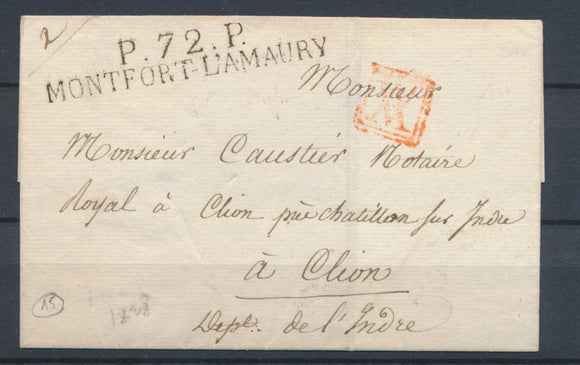 2
P.72.P.
MONTFORT-L'AMAURY
Monsieur
Monsieur Caustier Notaire
Royal à Clion près chatillon sur Indre
à Clion
Dept. de l'Indre
15
1828